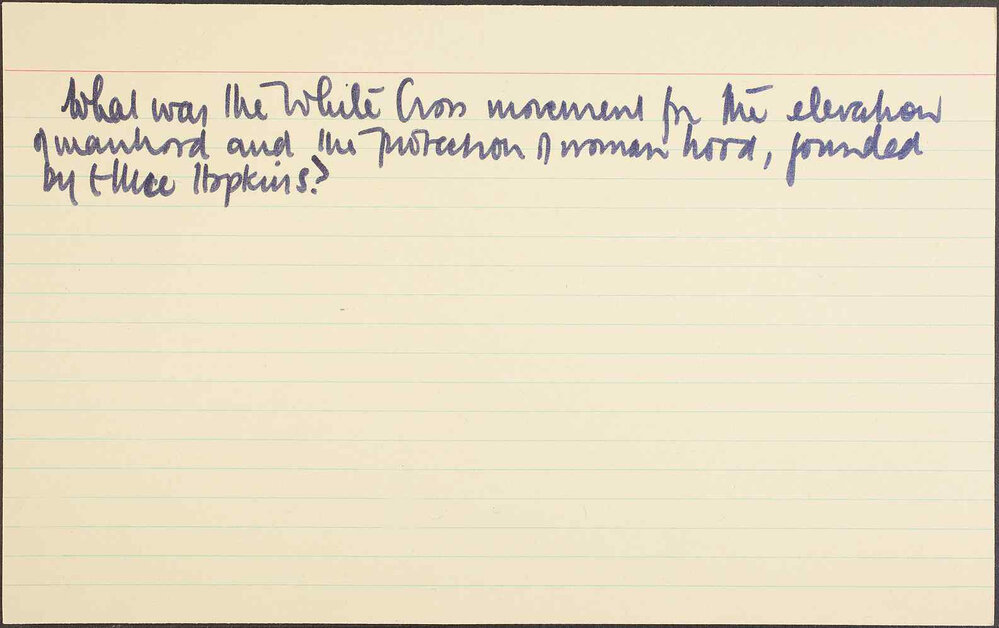 What was the White Cross movement for the elevation
of manhood and the protection of woman hood, founded
by Ellice Hopkins?